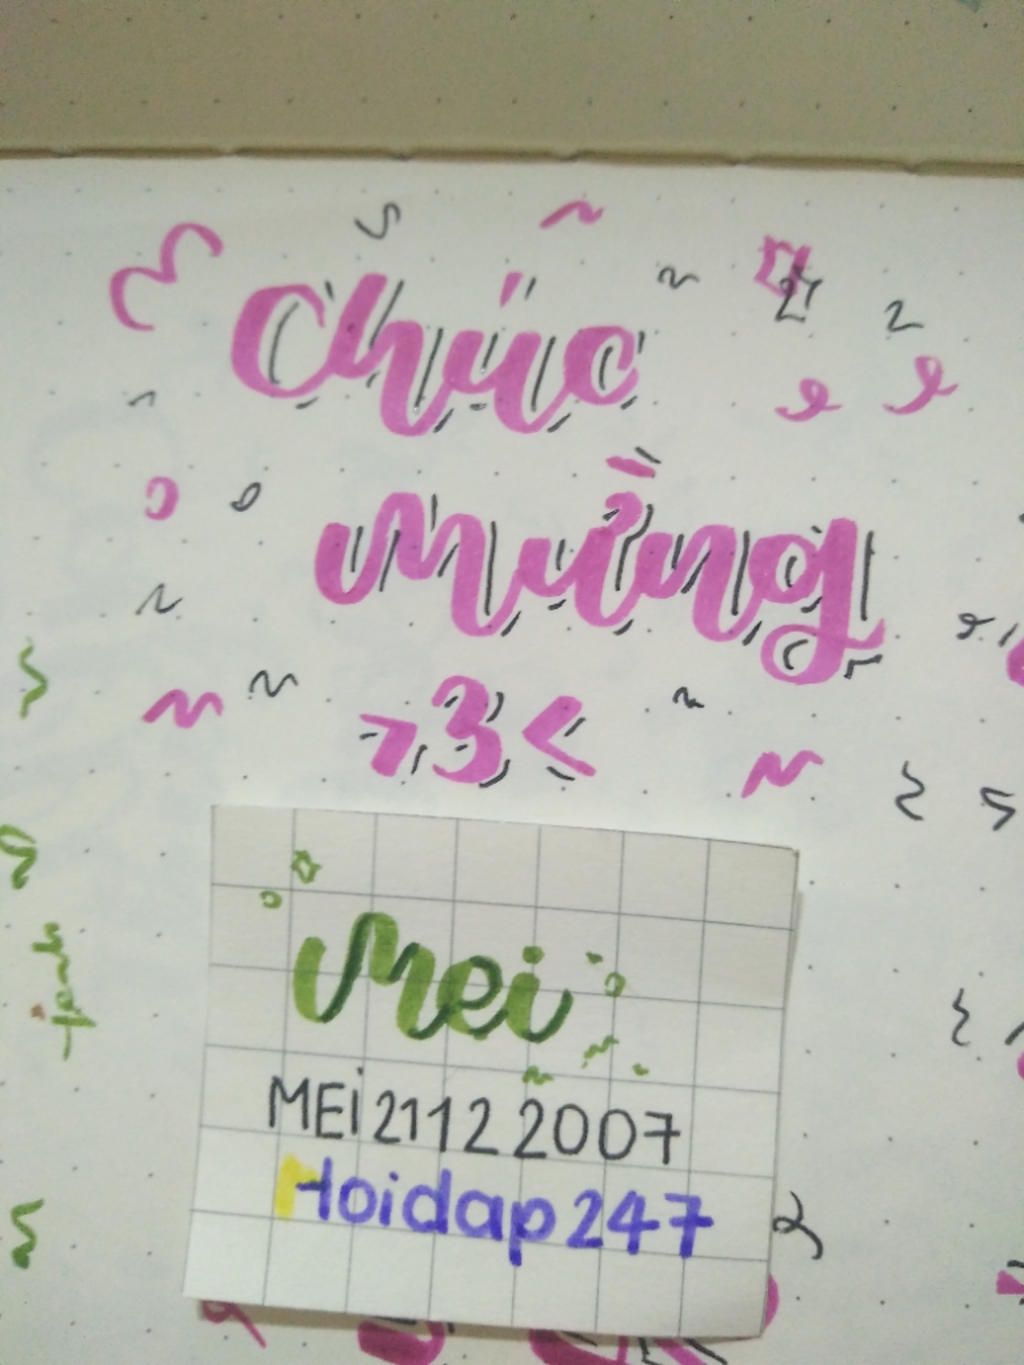 Chúc
mừng
>3<
Mei
MEi21122007
Hoidap247